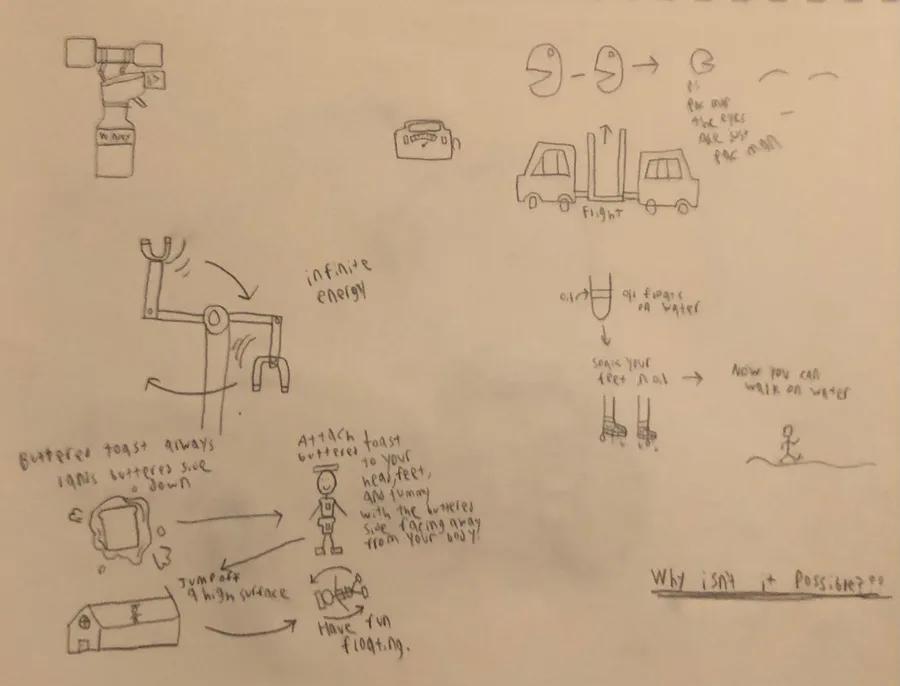 Pac man
the eyes
are just
pac man
Flight
infinite
energy
oil
oil floats
on water
Soak your
feet in oil
Now you can
walk on water
Buttered toast always
lands buttered side
down
Attach
buttered toast
to your
head, feet,
and tummy
with the buttered
side facing away
from your body.
Jump off
a high surface
Have fun
floating.
Why isn't it possible???